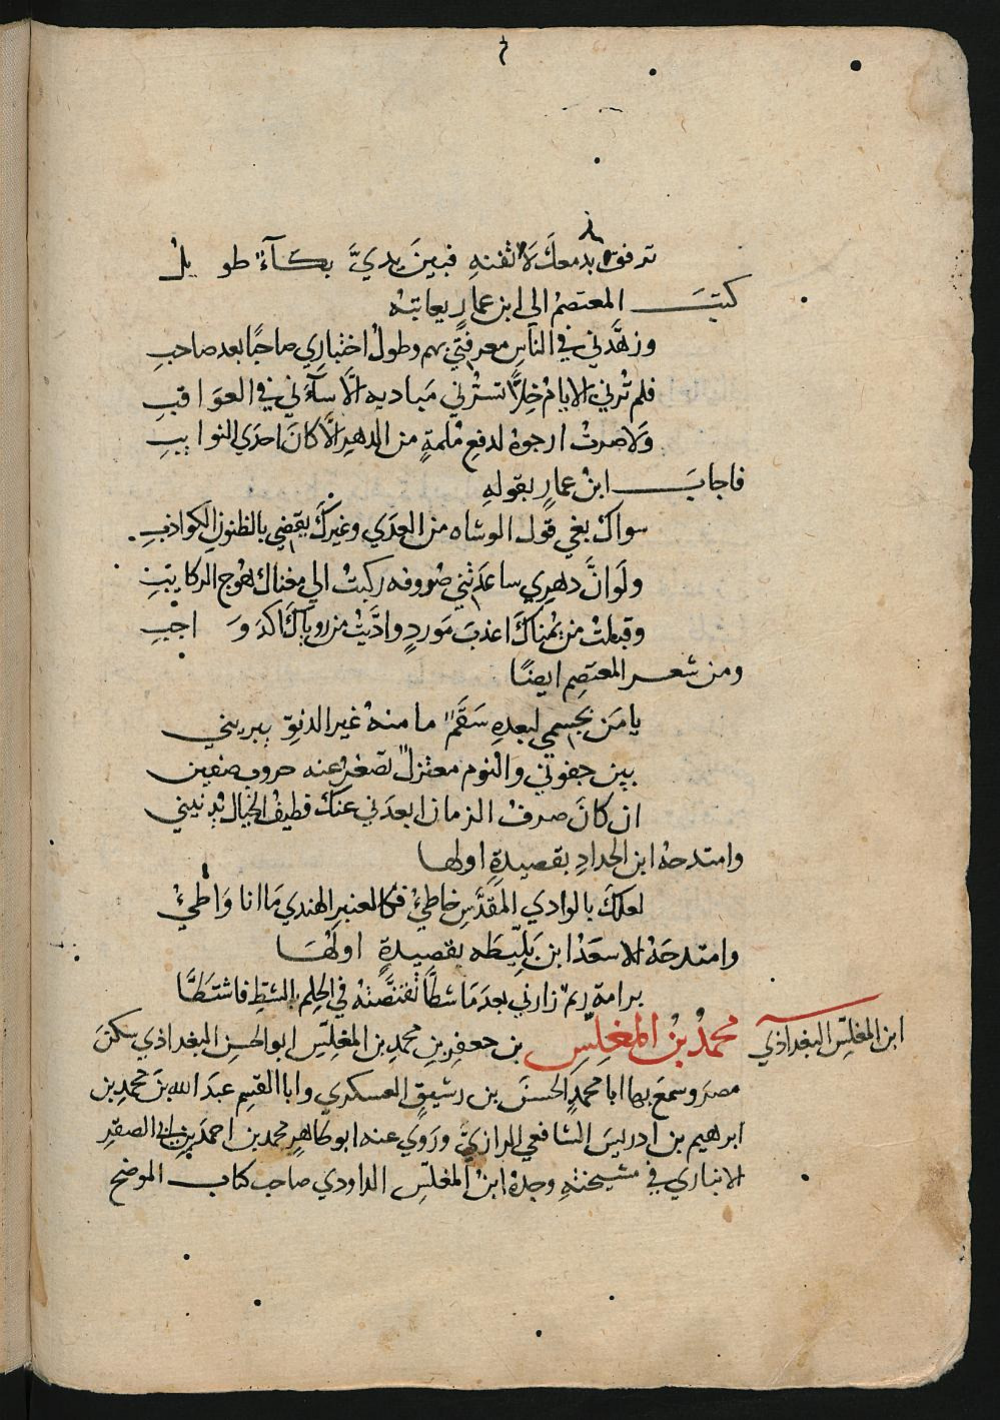 ترفق بدمعك لا تفنه فبين يدي بكآء طويل
كتب المعتصم الى ابن عمار يعاتبه
وزهّدني في الناس معرفتي بهم وطول اختباري صاحبًا بعد صاحب
فلم تُرني الايام خِلاًّ تسرّني مباديه الّا سآءني في العواقب
ولا صرت ارجوه لدفع مُلمةٍ من الدهر الّا كان احدى النوايب
فاجاب ابن عمارٍ بقوله
سواك يعي قول الوشاه من العدي وغيرك يقضي بالظنون الكواذب
ولو انّ دهري ساعدتني صروفه ركبت الي مغناك هوج الركايب
وقبلت من يمناك اعذب موردٍ وادّيت من روياك اكد واجب
ومن شعر المعتصم ايضًا
يا من بجسمي لبعده سقمٌ ما منه غير الدنوّ يبريني
بين جفوني والنوم معتزلٌ تصغر عنه حروب صفين
ان كان صرف الزمان ابعدني عنك فطيف الخيال يدنيني
وامتدحه ابن الحداد بقصيدةٍ اولها
لعلك بالوادي المقدّس خاطئ فكالعنبر الهندي ما انا واطئ
وامتدحه الاسعد ابن بليّطه بقصيدةٍ اولها
برامة ريم زارني بعد ما شطّا تقنّصته في الحلم بالشط فاشتطّا
ابن المغلّس البغداذي
محمد بن المغلّس بن جعفر بن محمد بن المغلّس ابو الحسن البغداذي سكن
مصر وسمع بها ابا محمدٍ الحسن بن رشيقٍ العسكري وابا القسم عبد الله بن محمد بن
ابرهيم بن ادريس الشافعي الرازي وروي عنه ابو طاهر محمد بن احمد بن ابي الصقر
الانباري في مشيخته وجده ابن المغلّس الداودي صاحب كتاب الموضح